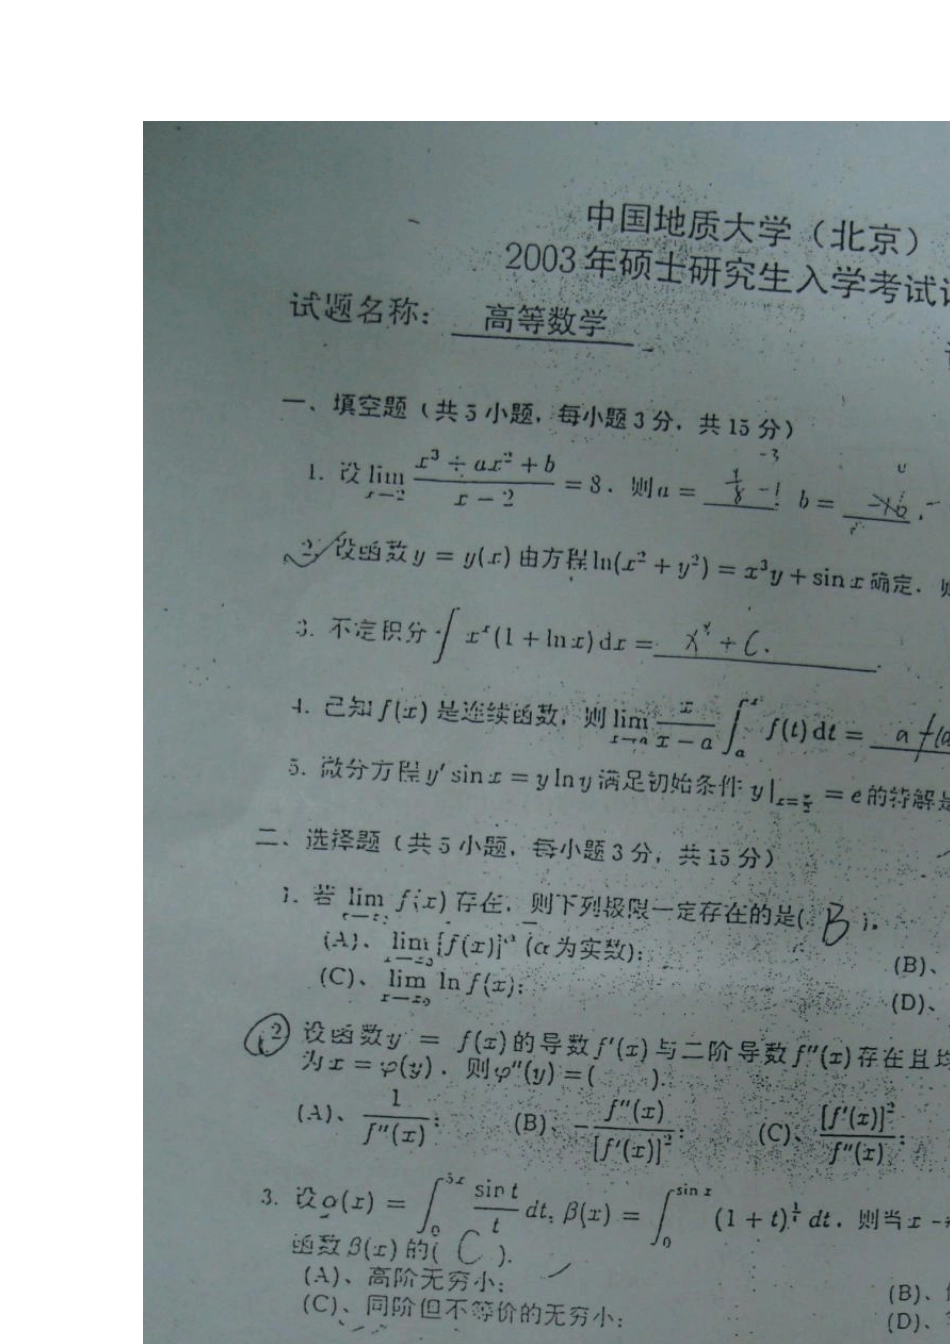 中国地质大学（北京）
2003年硕士研究生入学考试
试题名称： 高等数学
一、填空题（共5小题，每小题3分，共15分）
1. 设 lim x→2 (x³ + ax² + b)/(x − 2) = 8．则 a = b =
2. 设函数 y = y(x) 由方程 ln(x² + y²) = x³y + sin x 确定．
3. 不定积分 ∫ xˣ(1 + ln x) dx = xˣ + C.
4. 已知 f(x) 是连续函数，则 lim x→a x/(x − a) ∫ₐˣ f(t) dt = a f(a
5. 微分方程 y′ sin x = y ln y 满足初始条件 y|x=π/2 = e 的特解是
二、选择题（共5小题，每小题3分，共15分）
1. 若 lim x→x₀ f(x) 存在，则下列极限一定存在的是( B ).
(A)、lim x→x₀ [f(x)]^α (α为实数); (B)、
(C)、lim x→x₀ ln f(x); (D)、
2 设函数 y = f(x) 的导数 f′(x) 与二阶导数 f″(x) 存在且均
为 x = φ(y)．则 φ″(y) = ( ).
(A)、1/f″(x); (B)、−f″(x)/[f′(x)]²; (C)、[f′(x)]²/f″(x);
3. 设 α(x) = ∫₀^5x (sin t)/t dt, β(x) = ∫₀^sin x (1 + t)^(1/t) dt．则当 x →
函数 β(x) 的( C ).
(A)、高阶无穷小; (B)、
(C)、同阶但不等价的无穷小; (D)、